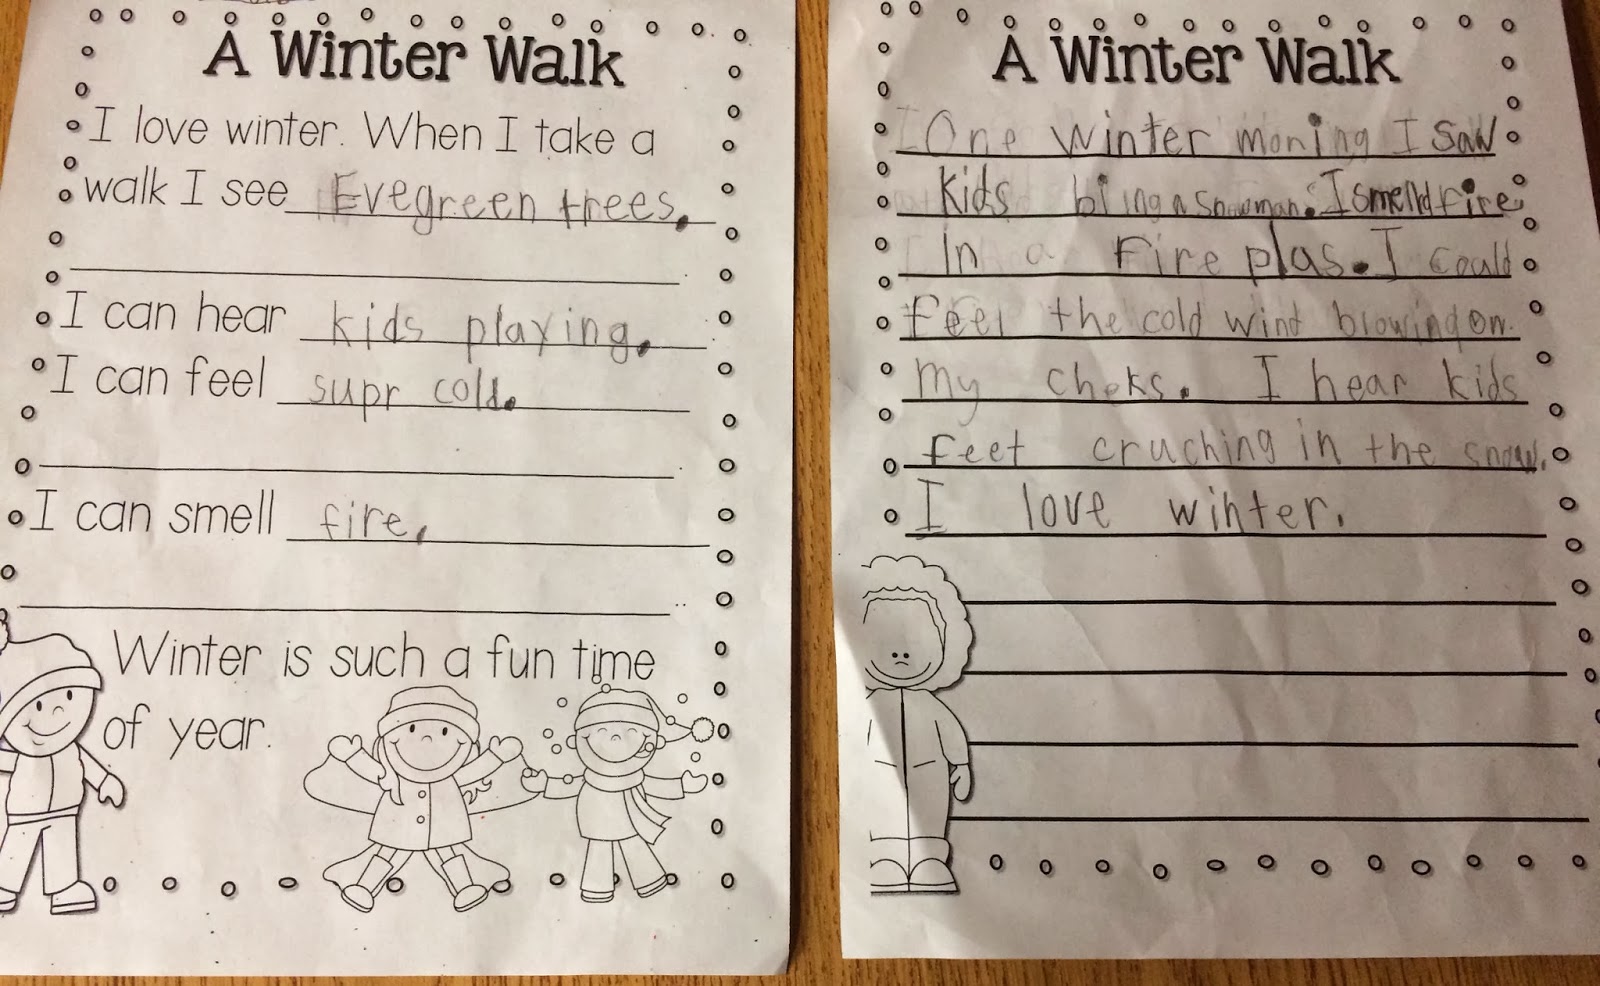 A Winter Walk
I love winter. When I take a
walk I see Evegreen trees.
I can hear kids playing.
I can feel supr cold.
I can smell fire.
Winter is such a fun time
of year.
A Winter Walk
One winter moning I saw
kids biling a snowman. I smelld fire
in a fire plas. I could
feel the cold wind blowing on
my cheks. I hear kids
feet cruching in the snow.
I love winter.